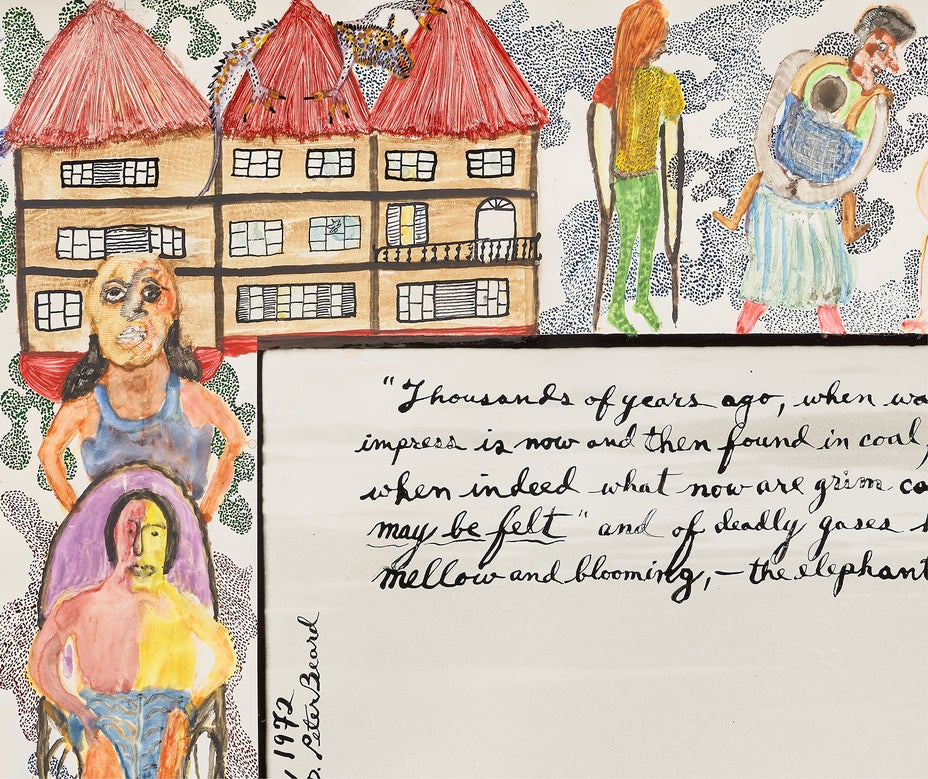 "Thousands of years ago, when
impress is now and then found in coal,
when indeed what now are grim
may be felt" and of deadly gases
mellow and blooming, — the elephant
1972
Peter Beard